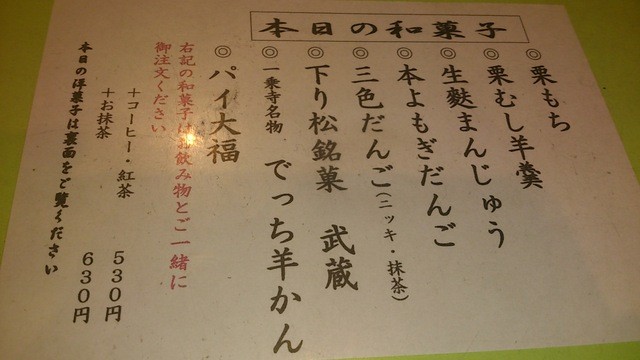 本日の和菓子
◎栗もち
◎栗むし羊羹
◎生麩まんじゅう
◎本よもぎだんご
◎三色だんご(ニッキ・抹茶)
◎下り松銘菓 武蔵
◎一乗寺名物 でっち羊かん
◎パイ大福
右記の和菓子はお飲み物とご一緒に
御注文ください
+コーヒー・紅茶 530円
+お抹茶 630円
本日の洋菓子は裏面をご覧ください